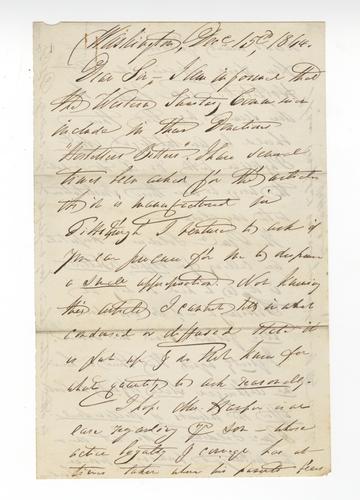 Washington, Dec 15th, 1864.
Dear Sir, - I am informed that
the Western Sanitary Commission
include in their Donations
"Hostetters Bitters". I have several
times been asked for the article
As it is manufactured in
Pittsburgh I venture to ask if
you can procure for me to dispense
a small appropriation. Not knowing
this article I cannot tell in what
condensed or diffused state it
is put up & do not know for
what quantity to ask reasonably.
I hope Mrs Harper is at
ease regarding yr son - whose
active loyalty & courage has at
times taken when his parents fears